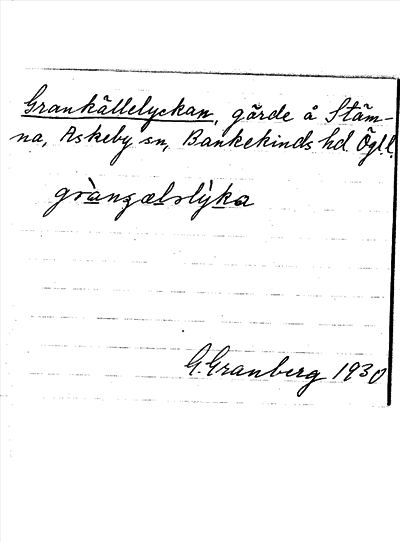 Grankällelyckan, gärde å Stäm-
na, Askeby sn, Bankekinds hd. Ögtl.
G. Granberg 1930